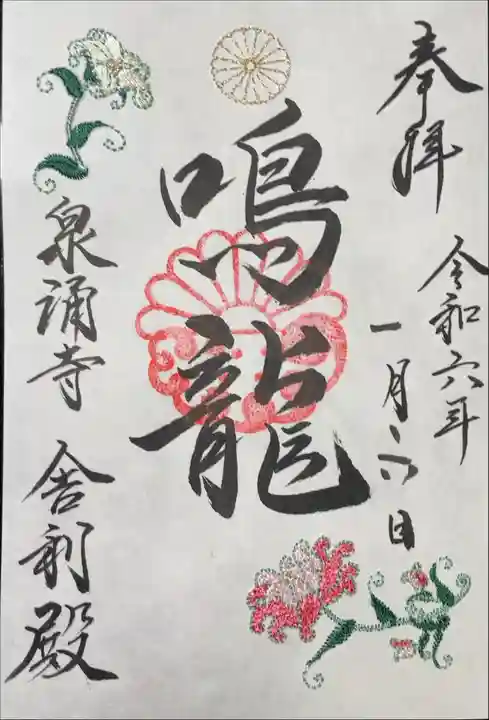 奉拝
令和六年
一月六日
鳴龍
泉涌寺 舎利殿